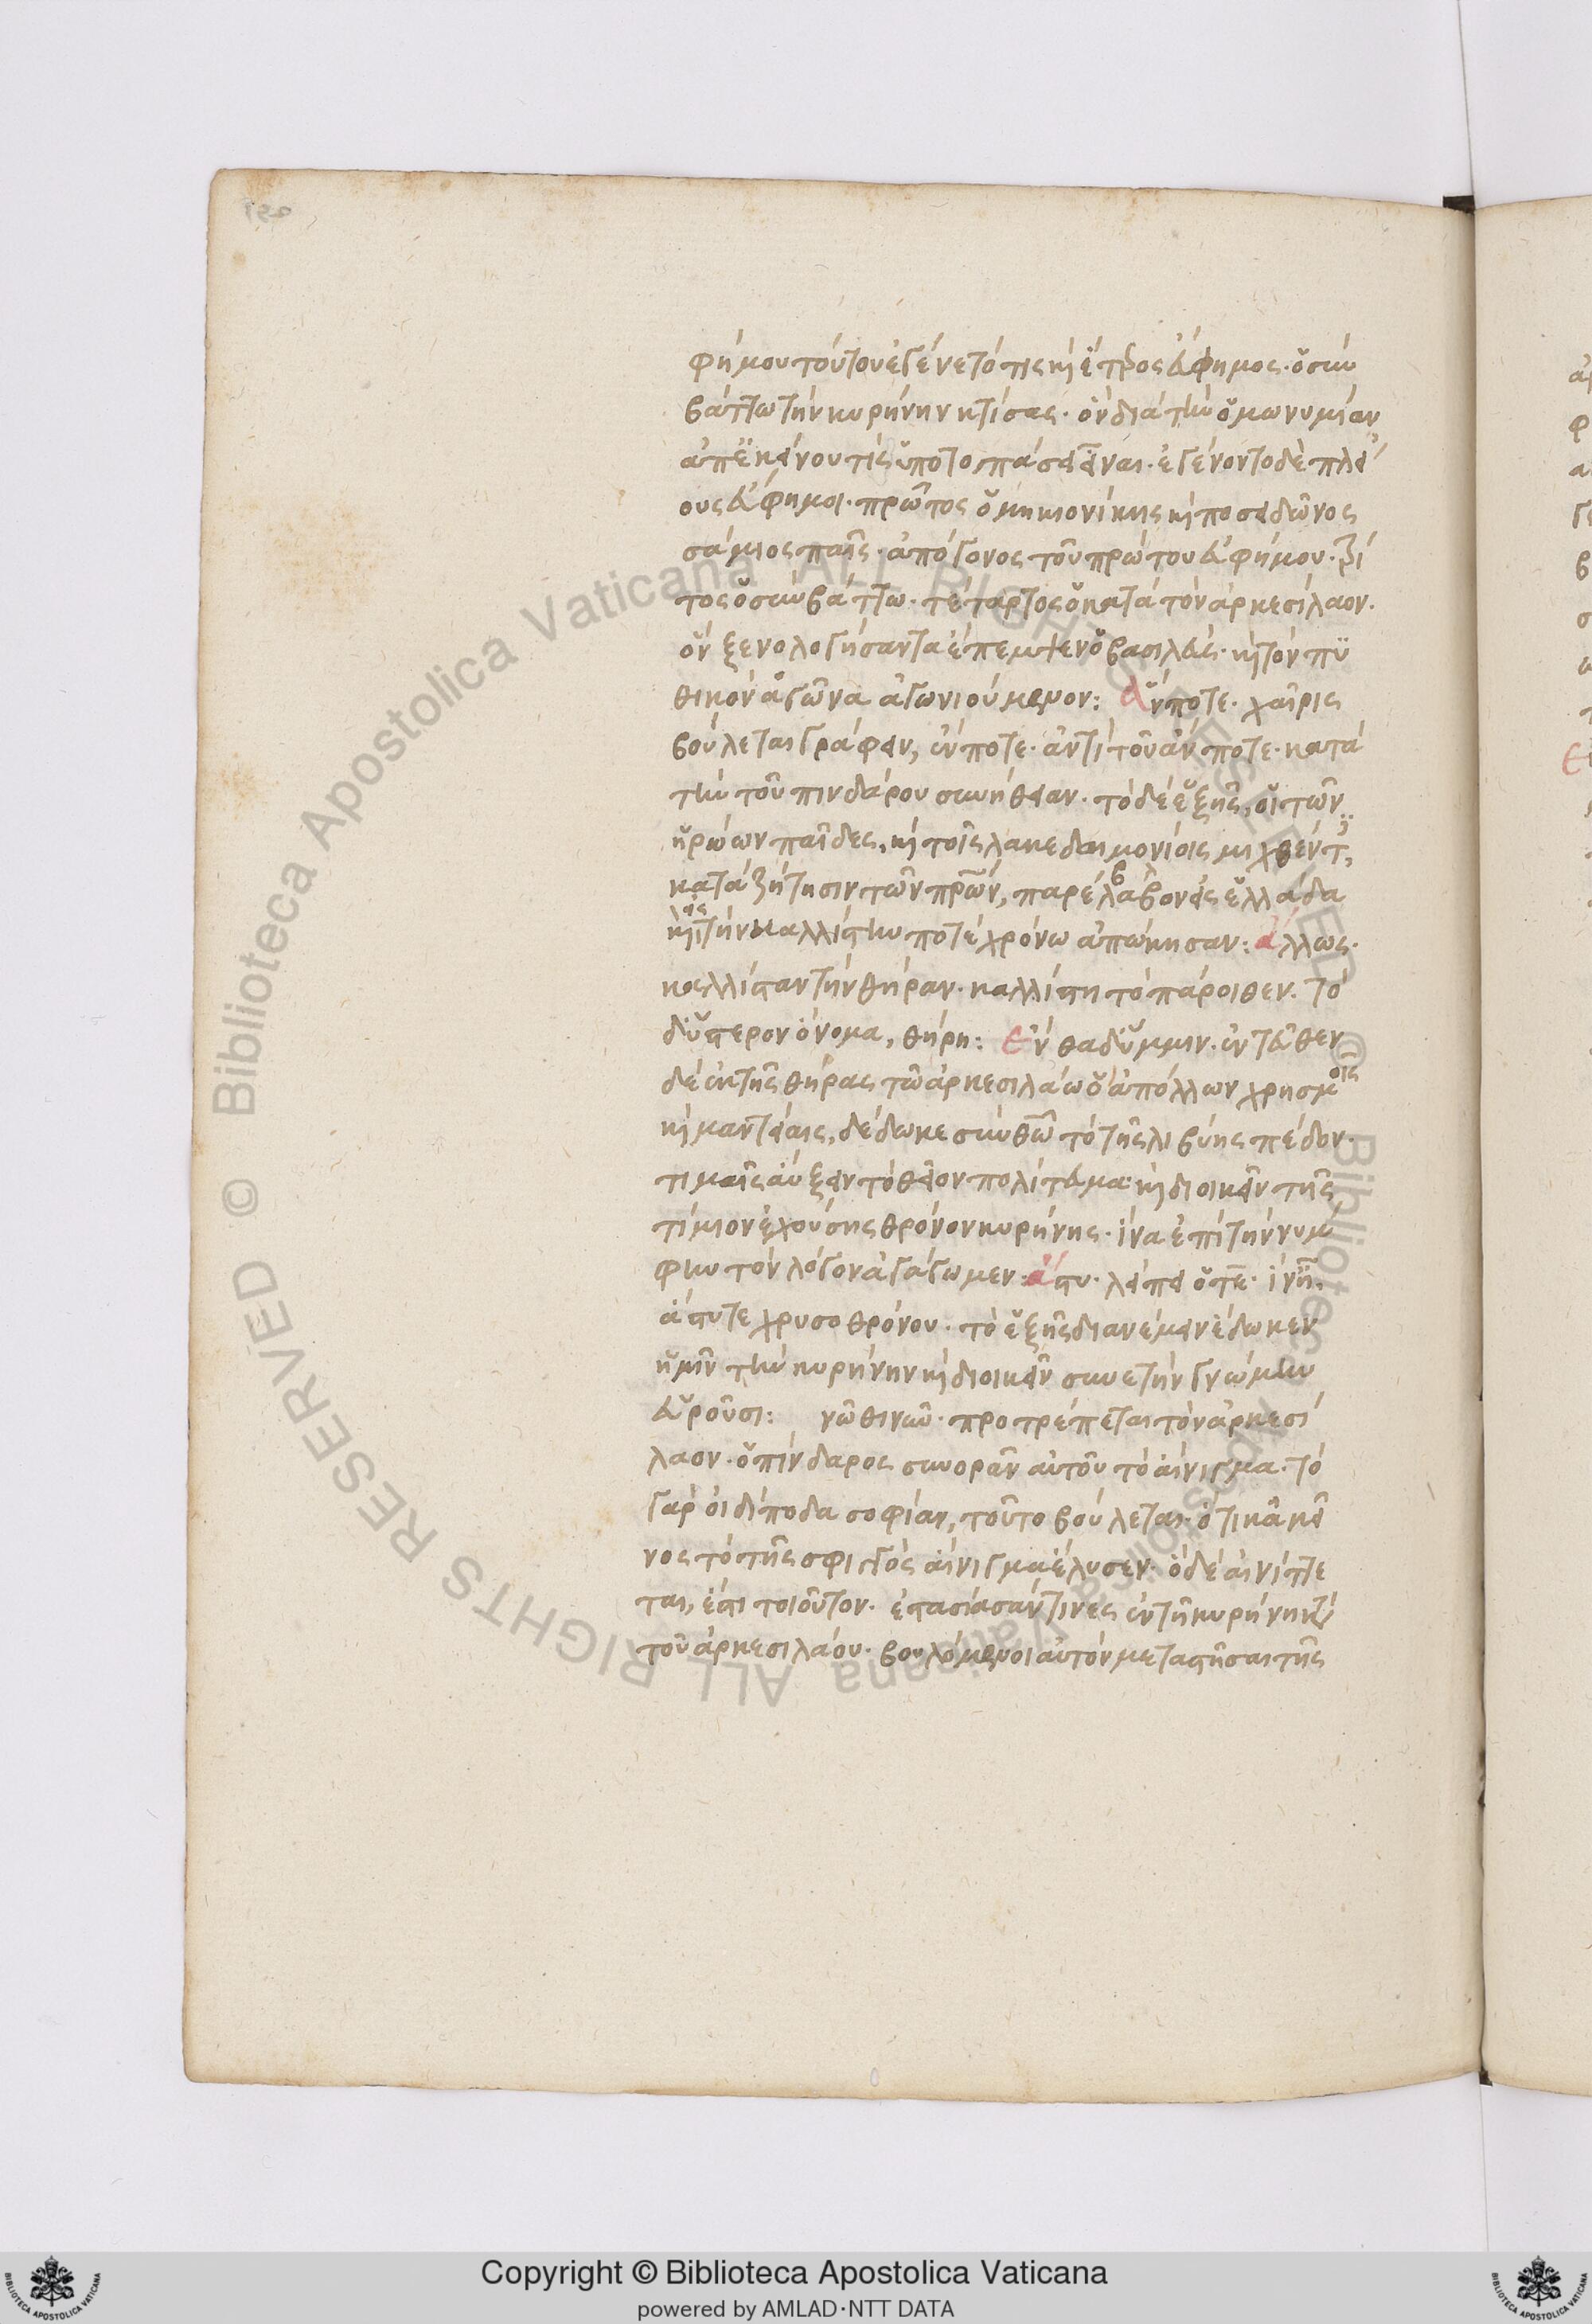 φήμου τούτου ἐγένετό τις κὶ ἕτερος εὔφημος· ὁ σὺν
βάττω τὴν κυρήνην κτίσας· ὃν διὰ τὴν ὁμωνυμίαν
ἀπ' ἐκείνου τὶς ὑποτοπάσειεν εἶναι· ἐγένοντο δὲ πλεί
ους εὔφημοι· πρῶτος ὁ μηκιονίκης κὶ ποσειδῶνος
σάμιος παῖς· ἀπόγονος τοῦ πρώτου εὐφήμου· τρί
τος ὁ σὺν βάττω· τέταρτος ὁ κατὰ τὸν ἀρκεσίλαον·
ὃν ξενολογήσαντα ἔπεμψεν ὁ βασιλεύς· κὶ τὸν πυ
θικὸν ἀγῶνα ἀγωνιούμενον: ἄν ποτε· χαῖρις
βούλεται γράφειν, ἔν ποτε· ἀντὶ τοῦ ἄν ποτε· κατὰ
τὴν τοῦ πινδάρου συνήθειαν· τὸ δὲ ἑξῆς, οἱ τῶν
ἡρώων παῖδες, κὶ τοῖς λακεδαιμονίοις μιχθέντες,
κατὰ ζήτησιν τῶν πρῶν, παρέλαβον εἰς ἑλλάδα
κὶ τὴν καλλίστην ποτὲ χρόνω ἀπώκησαν: ἄλλως·
καλλίσταν τὴν θήραν· καλλίστη τὸ πάροιθεν· τὸ
δεύτερον ὄνομα, θήρη: ἔνθα δ' ὔμμιν· ἐντεῦθεν
δὲ ἐκ τῆς θήρας τῶ ἀρκεσιλάω ὁ ἀπόλλων χρησμοῖς
κὶ μαντείαις, δέδωκε σὺν θεῶ τὸ τῆς λιβύης πέδον·
τιμαῖς αὔξειν τὸ θεῖον πολίτευμα· κὶ διοικεῖν τῆς
τίμιον ἐχούσης θρόνον κυρήνης· ἵνα ἐπὶ τὴν νύμ
φην τὸν λόγον ἀγάγωμεν: ἄστυ· λείπει ὅτε· ἵν' ᾖ
ἄστυ τε χρυσοθρόνου· τὸ ἑξῆς διανέμειν ἔδωκεν
ἡμῖν τὴν κυρήνην κὶ διοικεῖν συνετὴν γνώμην
εὑροῦσι: γνῶθι νῦν· προτρέπεται τὸν ἀρκεσί
λαον· ὁ πίνδαρος συνορᾶν αὐτοῦ τὸ αἴνιγμα· τὸ
γὰρ οἰδίποδα σοφίαν, τοῦτο βούλεται· ὅτι κἀκεῖ
νος τὸ τῆς σφιγγὸς αἴνιγμα ἔλυσεν· ὁ δὲ αἰνίττε
ται, ἔστι τοιοῦτον· ἐστασίασάν τινες ἐν τῆ κυρήνη κτ
τοῦ ἀρκεσιλάου· βουλόμενοι αὐτὸν μεταστῆσαι τῆς